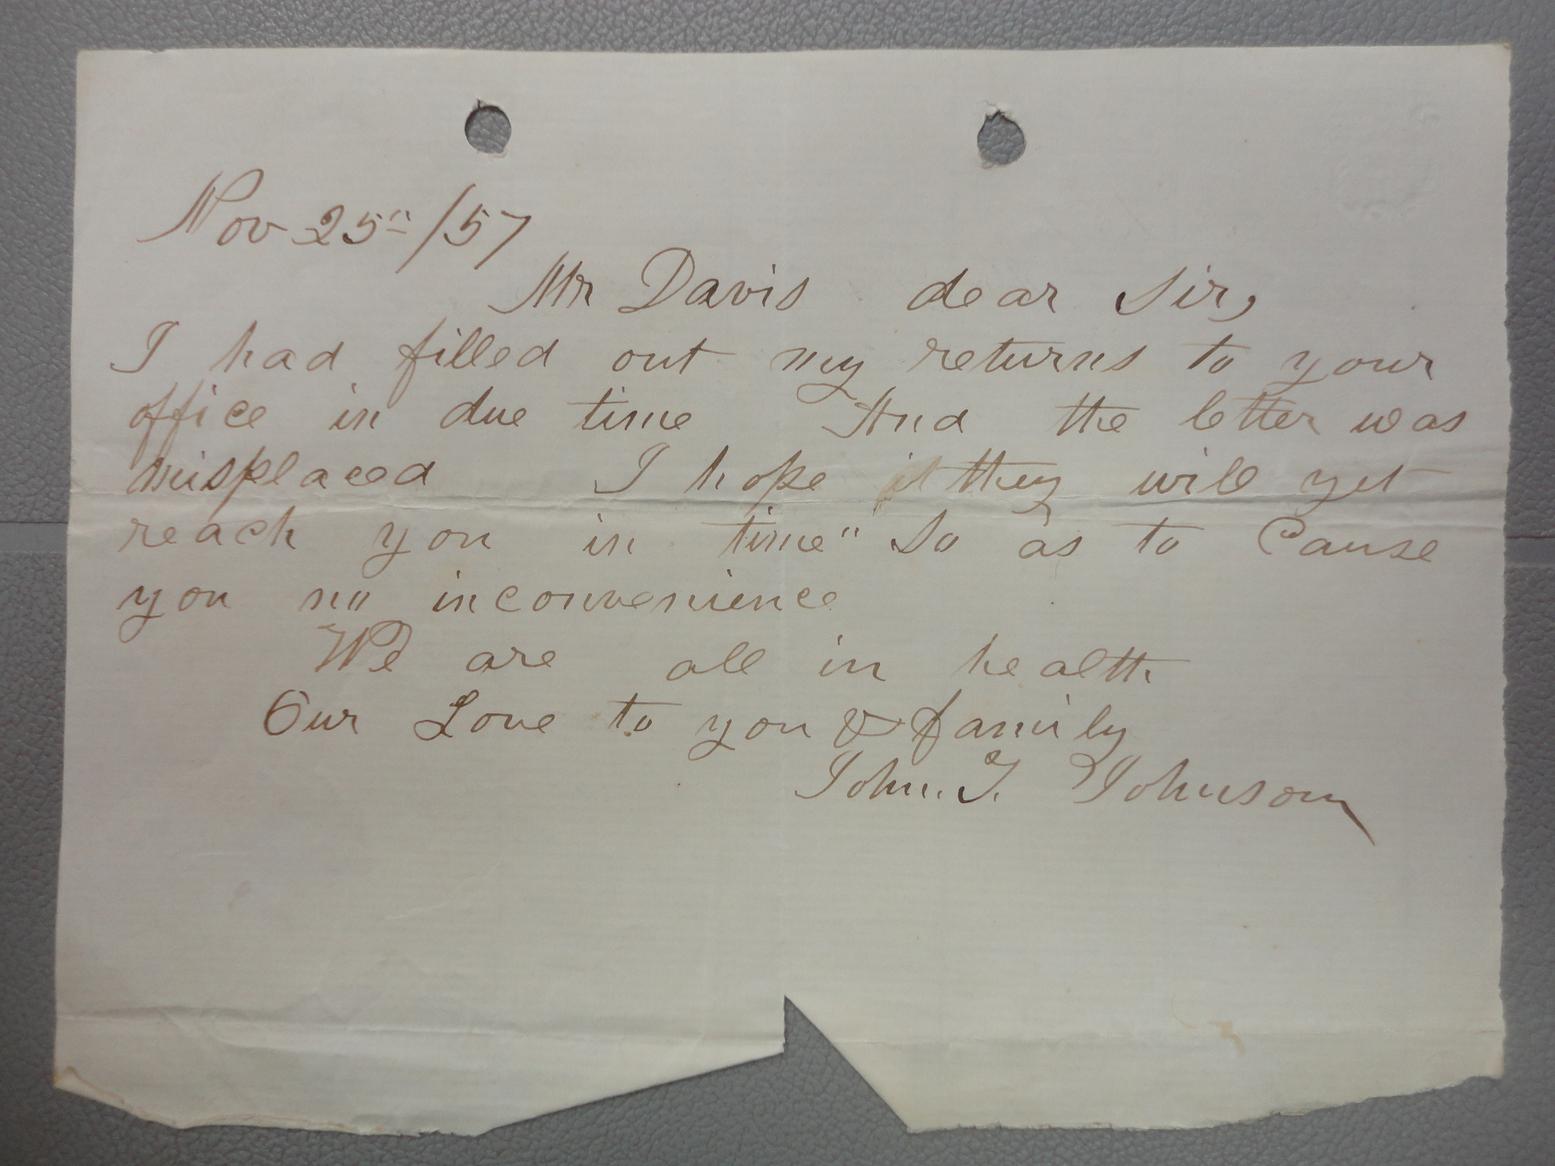 Nov 25" /57
Mr Davis dear Sir,
I had filled out my returns to your
office in due time And the letter was
misplaced I hope it they will yet
reach you in time" So as to Cause
you no inconvenience
We are all in health
Our Love to you & family
John. T. Johnson